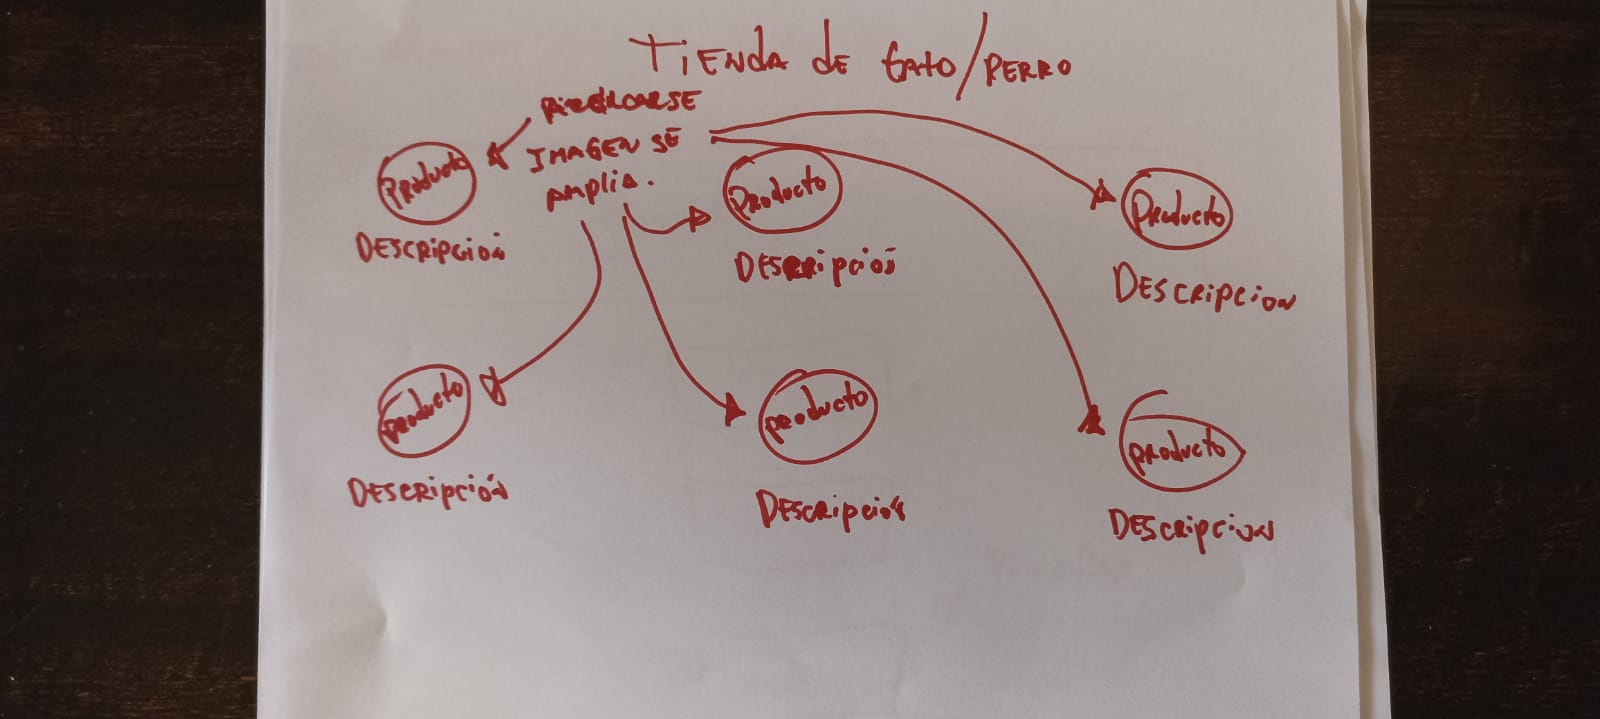 TIENDA de GATO/PERRO
ACERCARSE
IMAGEN SE
AMPLIA.
Producto
DESCRIPCIÓN
Producto
DESCRIPCIÓN
Producto
DESCRIPCION
producto
DESCRIPCIÓN
producto
DESCRIPCIÓN
producto
DESCRIPCION